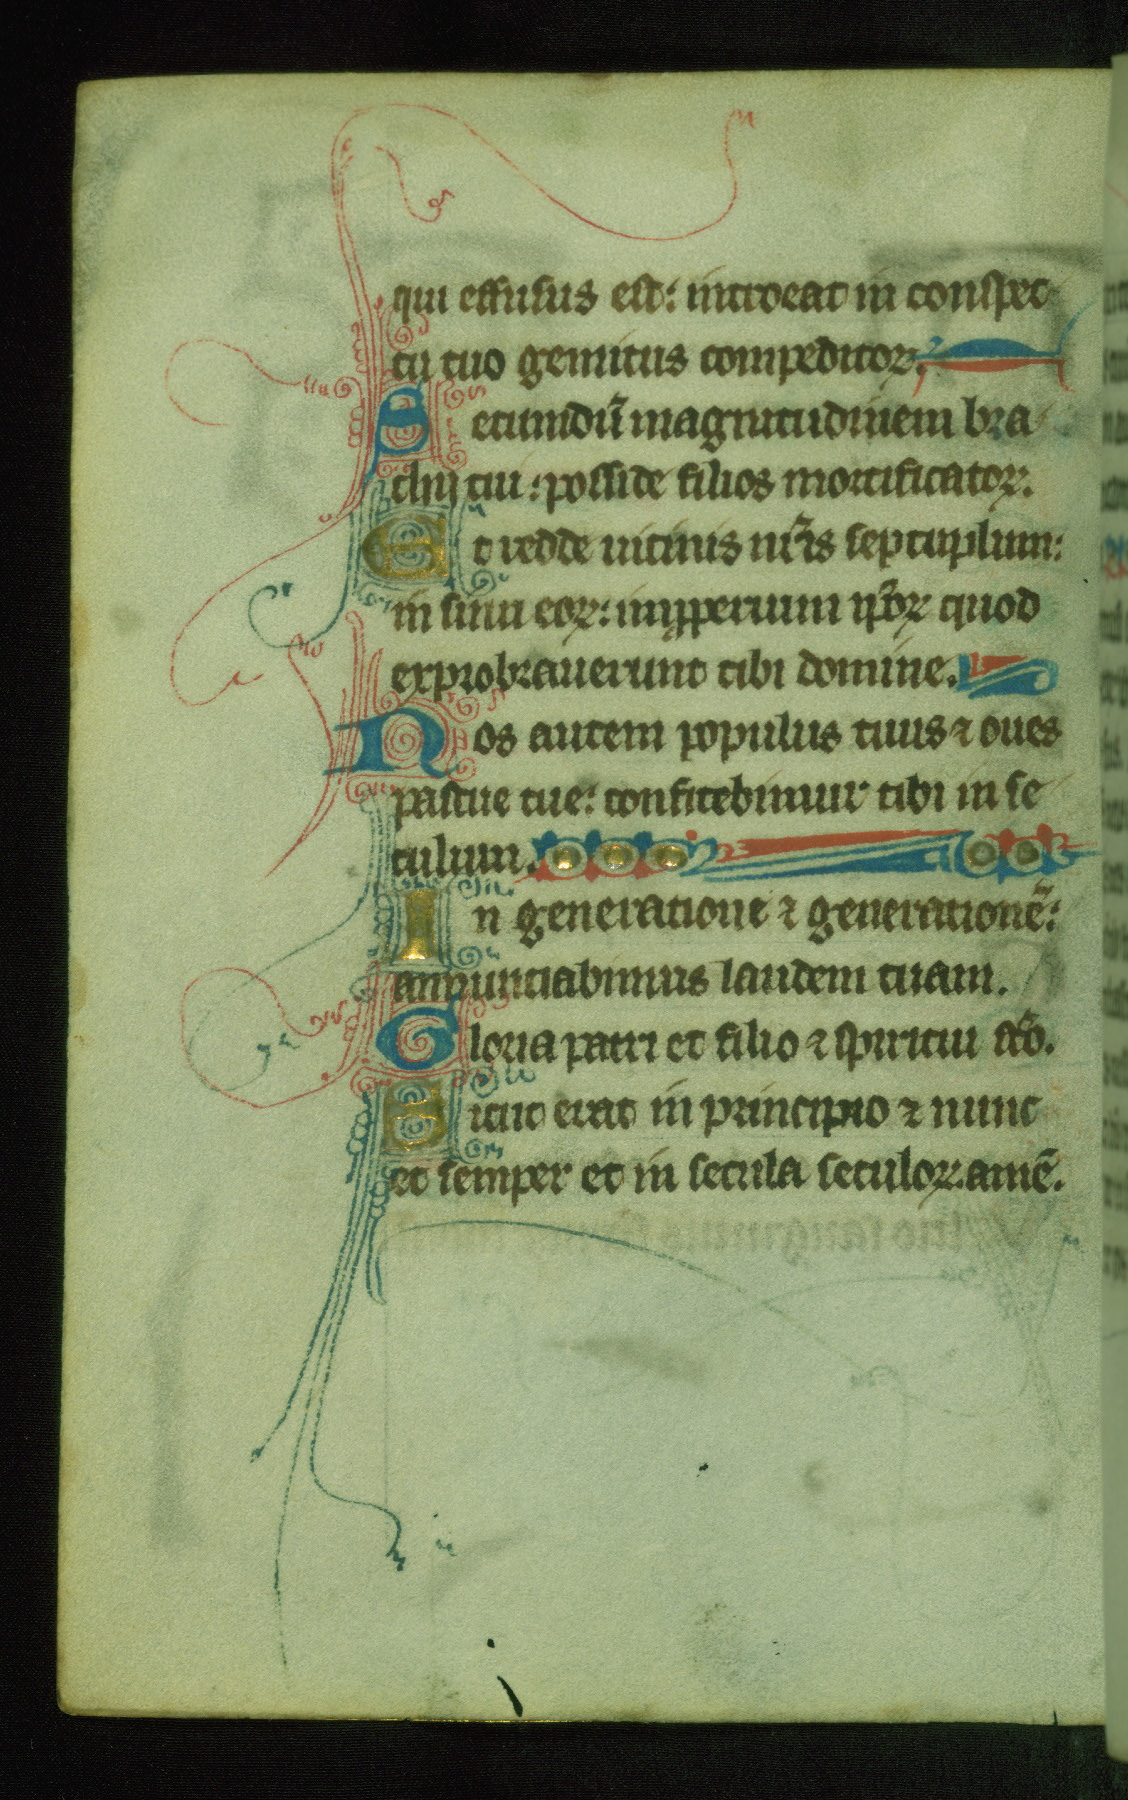 qui effusus est: introeat in conspec
tu tuo gemitus compeditoꝝ.
Secundū magnitudinem bra
chij tui: posside filios mortificatoꝝ.
Et redde uicinis nr̄is septuplum:
in sinu eoꝝ: imꝓperium ip̄oꝝ quod
exprobrauerunt tibi domine.
Nos autem populus tuus ⁊ oues
pascue tue: confitebimur tibi in se
culum.
In generatione ⁊ generationē:
annunciabimus laudem tuam.
Gloria patri et filio ⁊ spiritui sc̄o.
Sicut erat in principio ⁊ nunc
et semper et in secula seculoꝝ. amē.